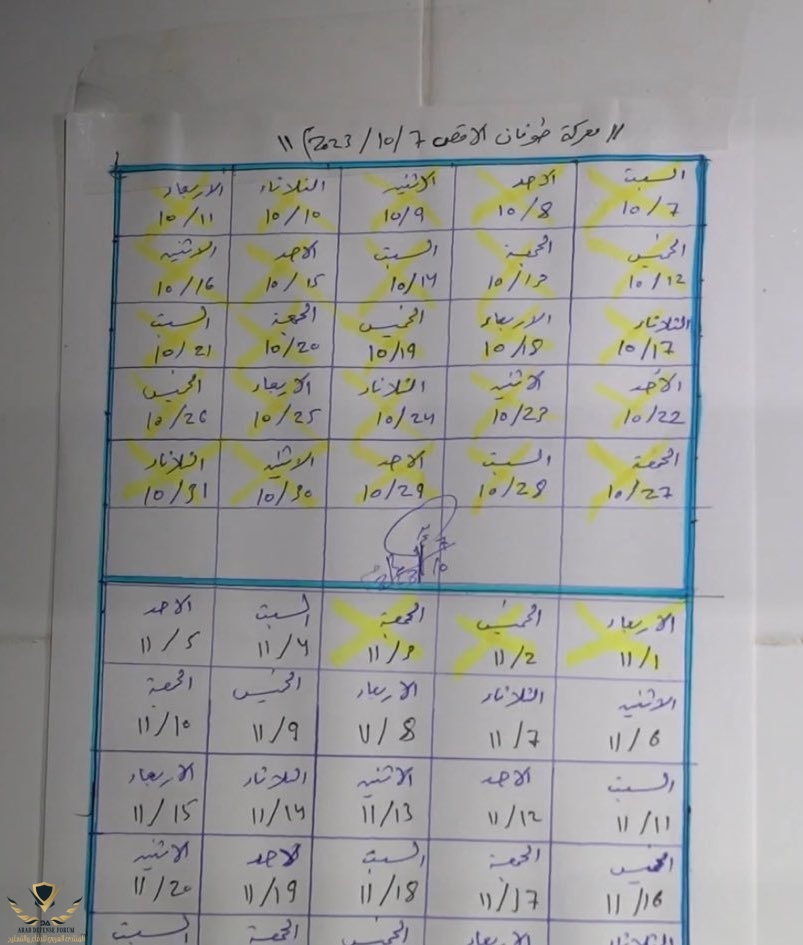 "معركة طوفان الاقصى 2023/10/7م"
السبت الاحد الاثنين الثلاثاء الاربعاء
10/7 10/8 10/9 10/10 10/11
الخميس الجمعة السبت الاحد الاثنين
10/12 10/13 10/14 10/15 10/16
الثلاثاء الاربعاء الخميس الجمعة السبت
10/17 10/18 10/19 10/20 10/21
الأحد الاثنين الثلاثاء الاربعاء الخميس
10/22 10/23 10/24 10/25 10/26
الجمعة السبت الاحد الاثنين الثلاثاء
10/27 10/28 10/29 10/30 10/31
الاربعاء الخميس الجمعة السبت الاحد
11/1 11/2 11/3 11/4 11/5
الاثنين الثلاثاء الاربعاء الخميس الجمعة
11/6 11/7 11/8 11/9 11/10
السبت الاحد الاثنين الثلاثاء الاربعاء
11/11 11/12 11/13 11/14 11/15
الخميس الجمعة السبت الاحد الاثنين
11/16 11/17 11/18 11/19 11/20
الثلاثاء الاربعاء الخميس الجمعة السبت
ARAB DEFENSE FORUM